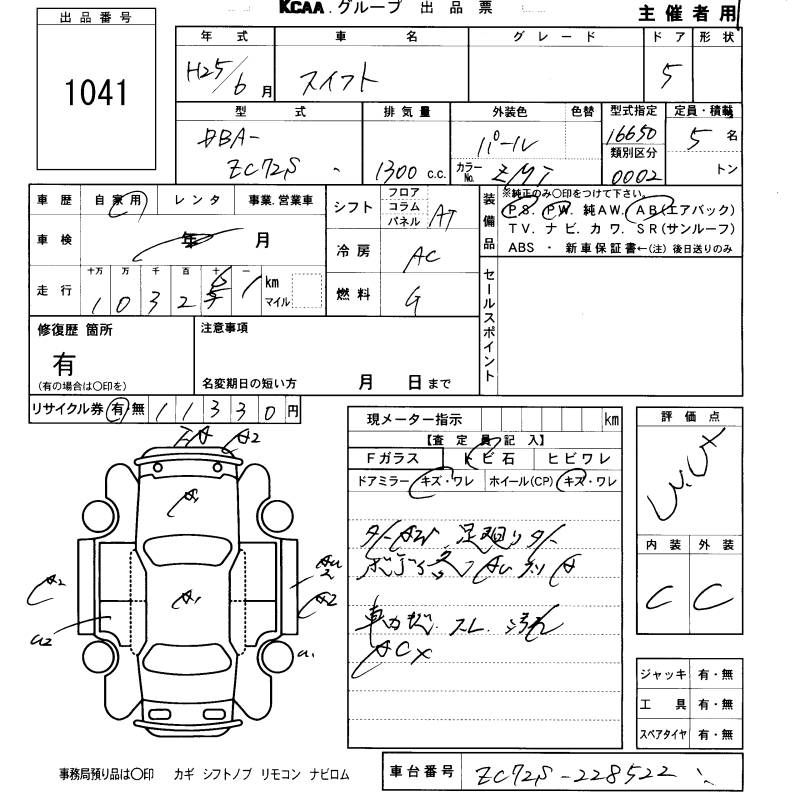 KCAA.グループ 出品票
主催者用
出品番号
1041
年式 車名 グレード ドア 形状
H25/6月 スイフト 5
型式 排気量 外装色 色替 型式指定 定員・積載
DBA-
ZC72S 1300 c.c. パール 16650 5名
カラーNo. ZMT 類別区分 0002 トン
車歴 自家用 レンタ 事業.営業車
車検 年 月
走行 十万 万 千 百 十 km マイル
1 0 3 2 1
シフト フロア コラム パネル AT
冷房 AC
燃料 G
装備品
※純正のみ○印をつけて下さい。
P S. P W. 純A W. A B (エアバック)
T V. ナビ. カワ. S R (サンルーフ)
ABS ・ 新車保証書←(注) 後日送りのみ
セールスポイント
修復歴 箇所
有
(有の場合は○印を)
注意事項
名変期日の短い方 月 日まで
リサイクル券 有 無 1 1 3 3 0 円
現メーター指示 km
【査定員記入】
Fガラス トビ石 ヒビワレ
ドアミラー キズ・ワレ ホイール(CP) キズ・ワレ
足廻り
スレ 汚れ
ACX
評価点
内装 外装
C C
A2
A1
A2
A1
A2
ジャッキ 有・無
工具 有・無
スペアタイヤ 有・無
事務局預り品は○印 カギ シフトノブ リモコン ナビロム
車台番号 ZC72S-228522